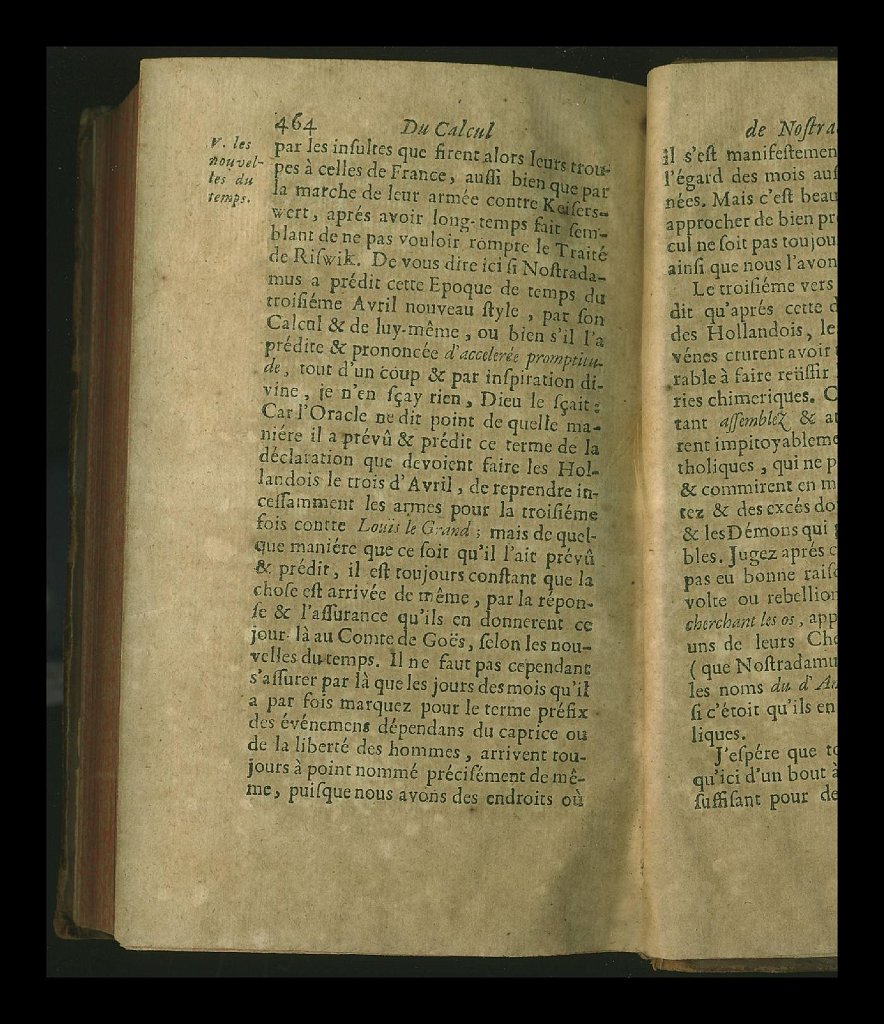 464 Du Calcul
V. les
nouvel-
les du
temps.
par les insultes que firent alors leurs trou-
pes à celles de France, aussi bien que par
la marche de leur armée contre Keisers-
wert, aprés avoir long-temps fait sem-
blant de ne pas vouloir rompre le Traité
de Riswik. De vous dire ici si Nostrada-
mus a prédit cette Epoque de temps du
troisiéme Avril nouveau style, par son
Calcul & de luy-même, ou bien s'il l'a
prédite & prononcée d'accelerée promptitu-
de, tout d'un coup & par inspiration di-
vine, je n'en sçay rien, Dieu le sçait:
Car l'Oracle ne dit point de quelle ma-
niére il a prévû & prédit ce terme de la
déclaration que devoient faire les Hol-
landois le trois d'Avril, de reprendre in-
cessamment les armes pour la troisiéme
fois contre Louis le Grand; mais de quel-
que maniére que ce soit qu'il l'ait prévû
& prédit, il est toujours constant que la
chose est arrivée de même, par la répon-
se & l'assurance qu'ils en donnerent ce
jour-là au Comte de Goës, selon les nou-
velles du temps. Il ne faut pas cependant
s'assurer par là que les jours des mois qu'il
a par fois marquez pour le terme préfix
des événemens dépendans du caprice ou
de la liberté des hommes, arrivent tou-
jours à point nommé précisément de mê-
me, puisque nous avons des endroits où
de Nostra
il s'est manifestemen
l'égard des mois aus
nées. Mais c'est beau
approcher de bien pr
cul ne soit pas toujou
ainsi que nous l'avon
Le troisiéme vers
dit qu'aprés cette d
des Hollandois, le
vénes crurent avoir
rable à faire reüssir
ries chimeriques. C
tant assemblez & at
rent impitoyableme
tholiques, qui ne p
& commirent en m
tez & des excés do
& les Démons qui
bles. Jugez aprés c
pas eu bonne raiso
volte ou rebellion
cherchant les os, app
uns de leurs Che
(que Nostradamu
les noms du d'An
si c'étoit qu'ils en
liques.
J'espére que to
qu'ici d'un bout à
suffisant pour de